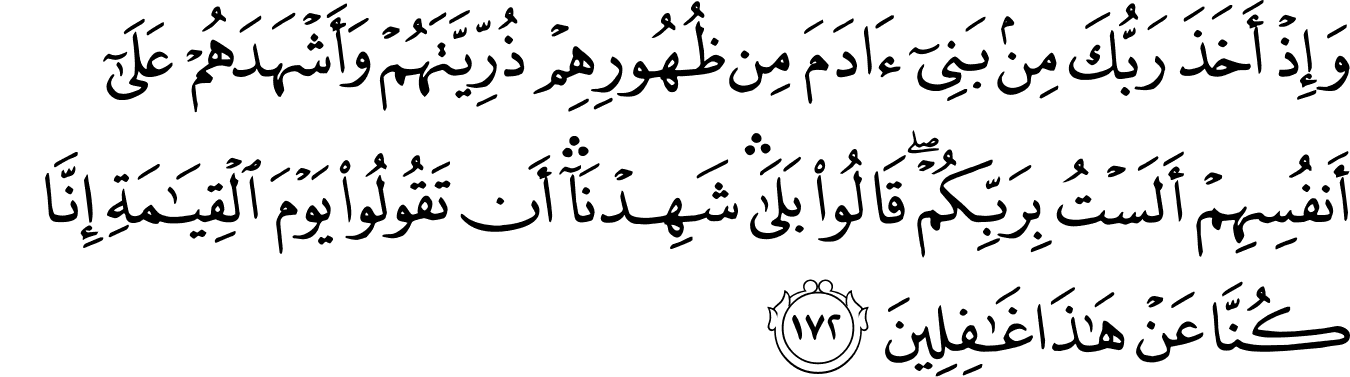 وَإِذْ أَخَذَ رَبُّكَ مِنۢ بَنِىٓ ءَادَمَ مِن ظُهُورِهِمْ ذُرِّيَّتَهُمْ وَأَشْهَدَهُمْ عَلَىٰٓ
أَنفُسِهِمْ أَلَسْتُ بِرَبِّكُمْ ۖ قَالُوا۟ بَلَىٰ ۛ شَهِدْنَآ ۛ أَن تَقُولُوا۟ يَوْمَ ٱلْقِيَـٰمَةِ إِنَّا
كُنَّا عَنْ هَـٰذَا غَـٰفِلِينَ ١٧٢